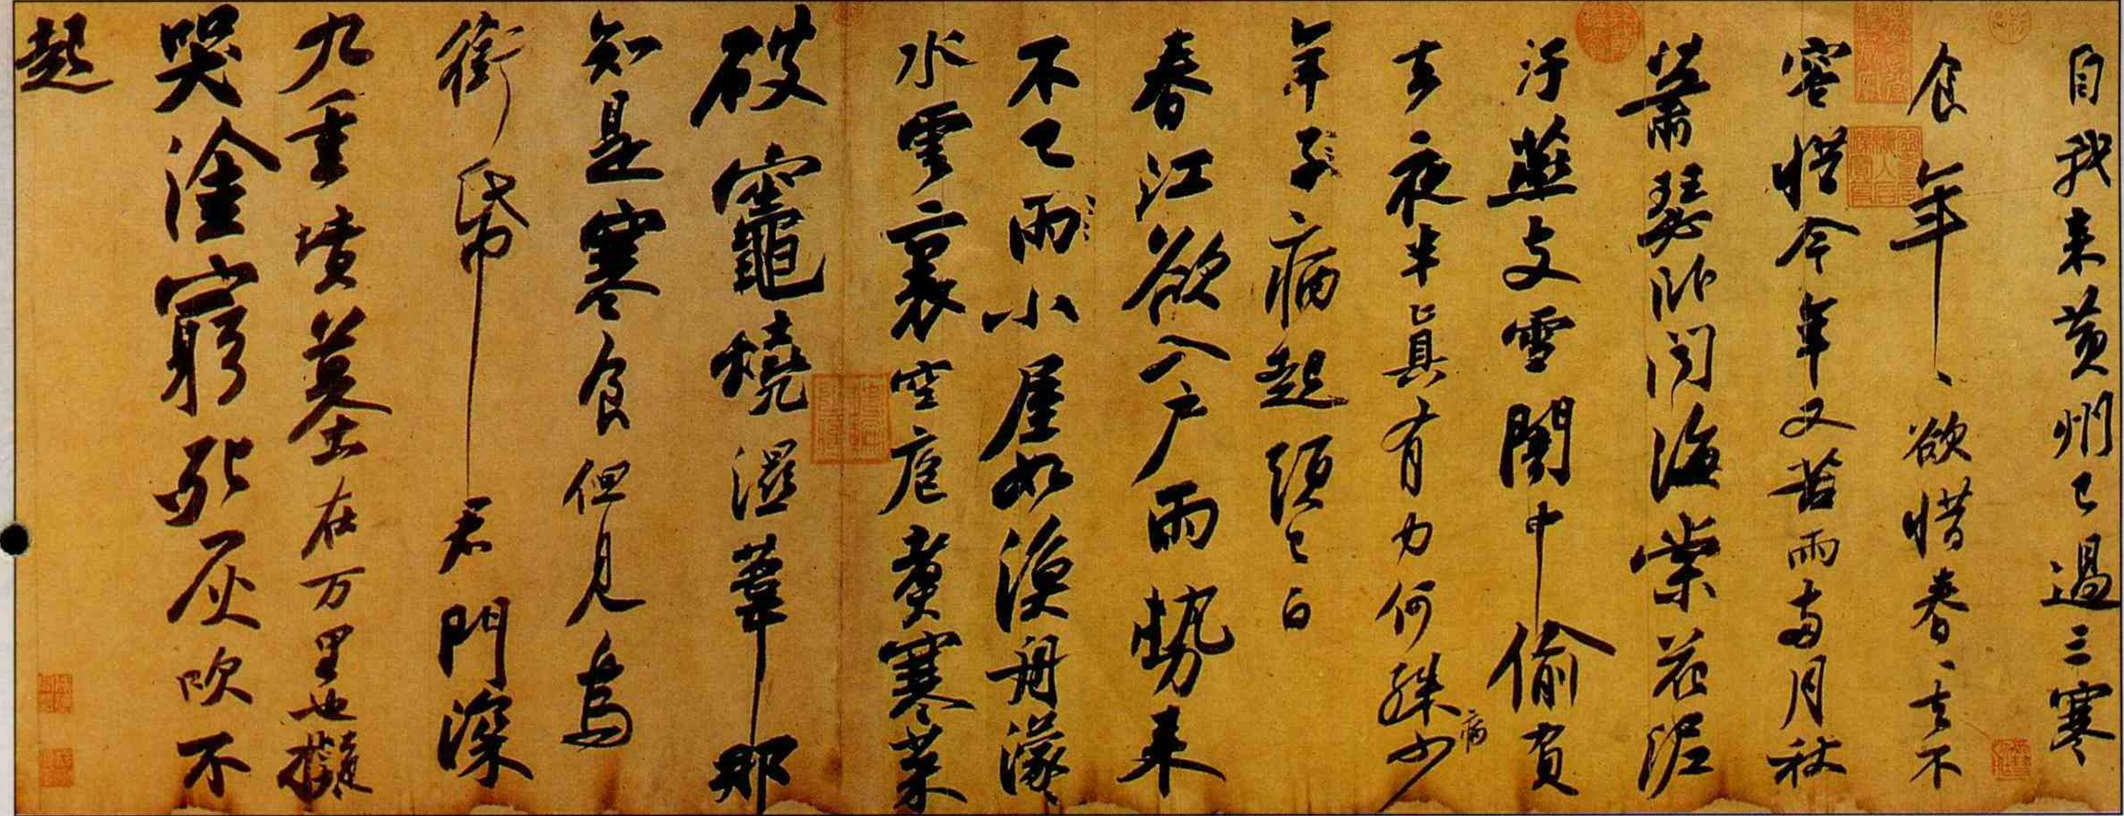 自我来黄州已過三寒
食年、欲惜春、去不
容惜今年又苦雨兩月秋
蕭瑟卧聞海棠花泥
汙燕支雪闇中偷負
去夜半真有力何殊少
年子病起頭已白
春江欲入户雨勢来
不已雨小屋如漁舟濛
水雲裏空庖煮寒菜
破竈燒濕葦那
知是寒食但見烏
銜帋君門深
九重墳墓在万里也擬
哭塗窮死灰吹不
起
病